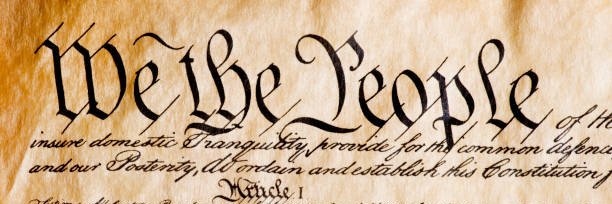 We the People of the
insure domestic Tranquility, provide for the common defence
and our Posterity, do ordain and establish this Constitution f
Article I